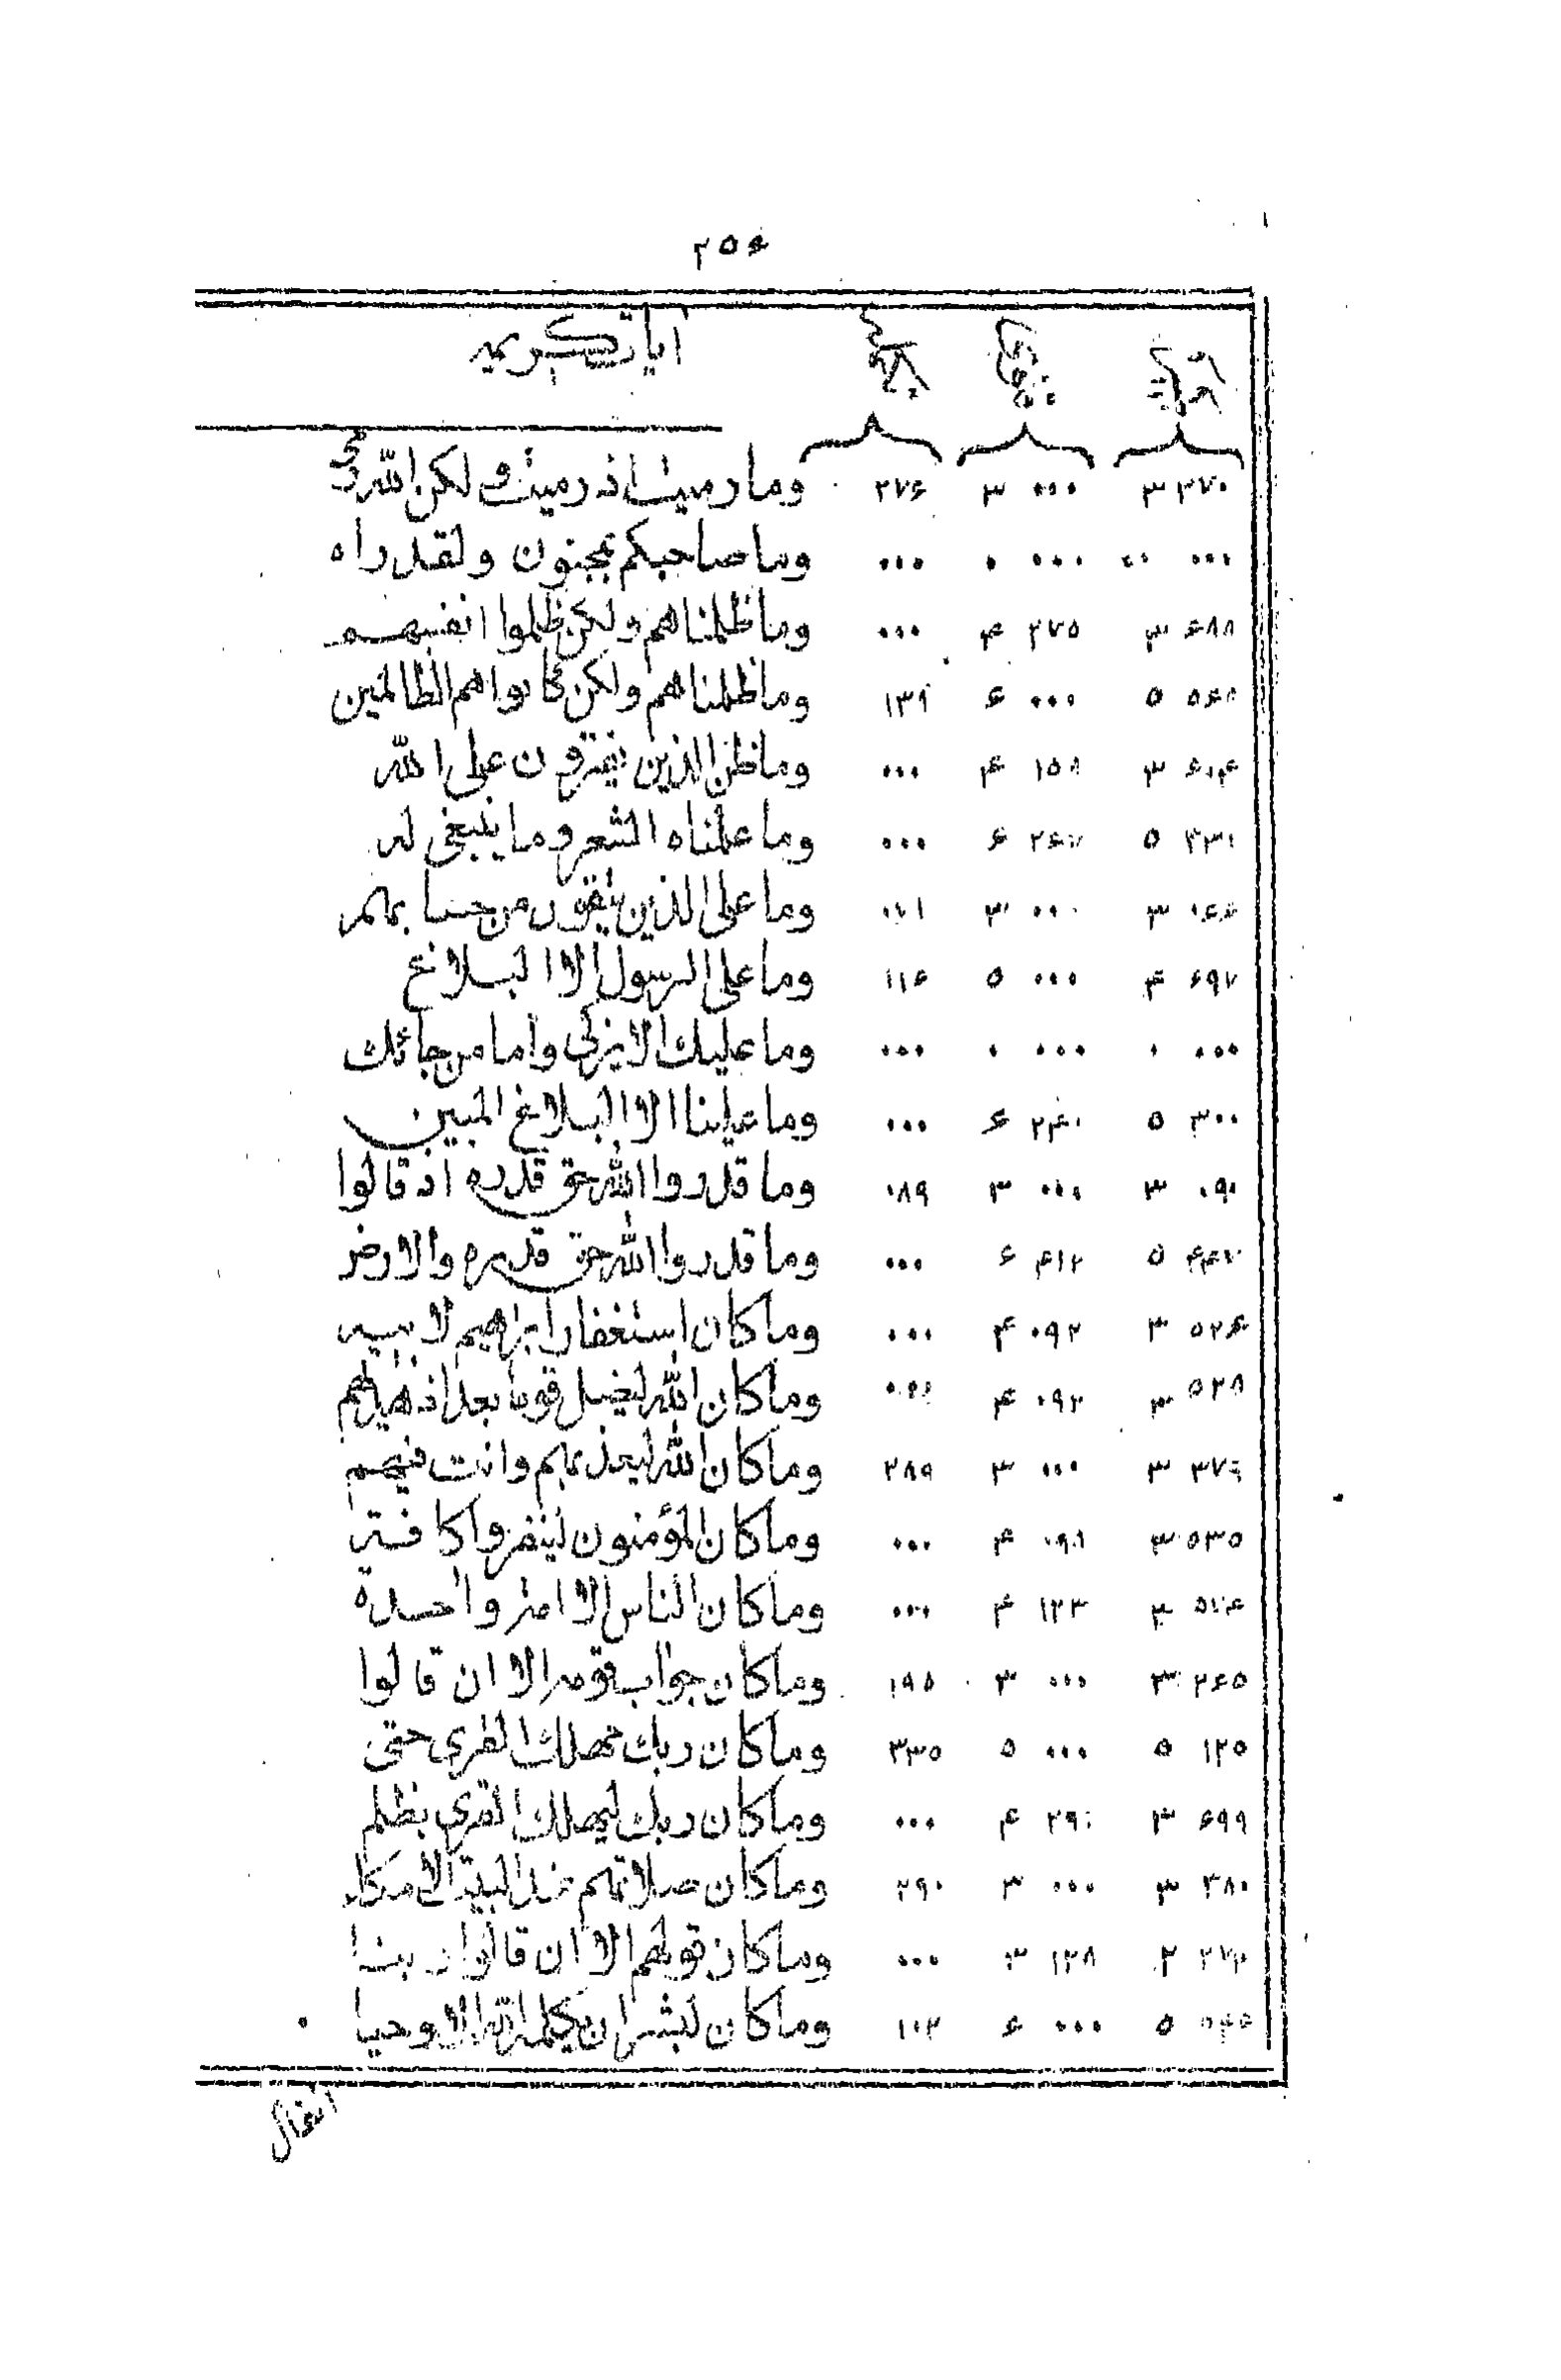 ۲۵۶
آیات کریمه
۳ ۳۷۰ ۳ ۰۰۰ ۲۷۶ وما رمیت اذ رمیت ولکن الله رمی
۰۰ ۰۰۰ ۰ ۰۰۰ ۰۰۰ وما صاحبکم بمجنون ولقد راه
۳ ۶۸۸ ۴ ۲۷۵ ۰۰۰ وما ظلمناهم ولکن ظلموا انفسهم
۵ ۵۶۸ ۶ ۰۰۰ ۱۳۹ وما ظلمناهم ولکن کانوا هم الظالمین
۳ ۶۰۴ ۴ ۱۵۸ ۰۰۰ وما ظن الذین یفترون علی الله
۵ ۳۳۱ ۶ ۲۶۷ ۰۰۰ وما علمناه الشعر وما ینبغی له
۳ ۰۶۶ ۳ ۰۰۰ وما علی الذین یتقون من حسابهم
۴ ۶۹۷ ۵ ۰۰۰ ۱۱۶ وما علی الرسول الا البلاغ
۰ ۰۰۰ ۰ ۰۰۰ ۰۰۰ وما علیک الا یزکی واما من جائک
۵ ۳۰۰ ۶ ۲۴۰ ۰۰۰ وما علینا الا البلاغ المبین
۳ ۰۹۰ ۳ ۰۰۰ ۰۸۹ وما قدروا الله حق قدره اذ قالوا
۵ ۴۴۷ ۶ ۴۱۲ ۰۰۰ وما قدروا الله حق قدره والارض
۳ ۵۲۶ ۴ ۰۹۲ ۰۰۰ وما کان استغفار ابراهیم لابیه
۳ ۵۲۸ ۴ ۰۹۲ ۰۰۰ وما کان الله لیضل قوما بعد اذ هدیهم
۳ ۳۷۹ ۳ ۰۰۰ ۲۸۹ وما کان الله لیعذبهم وانت فیهم
۳ ۵۳۵ ۴ ۰۹۸ ۰۰۰ وما کان المؤمنون لینفروا کافة
۳ ۵۷۴ ۴ ۱۲۳ ۰۰۰ وما کان الناس الا امة واحدة
۳ ۲۶۵ ۳ ۰۰۰ ۱۹۵ وما کان جواب قومه الا ان قالوا
۵ ۱۲۵ ۵ ۰۰۰ ۳۳۵ وما کان ربک مهلک القری حتی
۳ ۶۹۹ ۴ ۲۹۰ ۰۰۰ وما کان ربک لیهلک القری بظلم
۳ ۳۸۰ ۳ ۰۰۰ ۲۹۰ وما کان صلاتهم عند البیت الا مکاء
۲ ۲۷۲ ۳ ۱۲۸ ۰۰۰ وما کان قولهم الا ان قالوا ربنا
۵ ۶ ۰۰۰ ۱۰۲ وما کان لبشر ان یکلمه الله الا وحیا
انفال